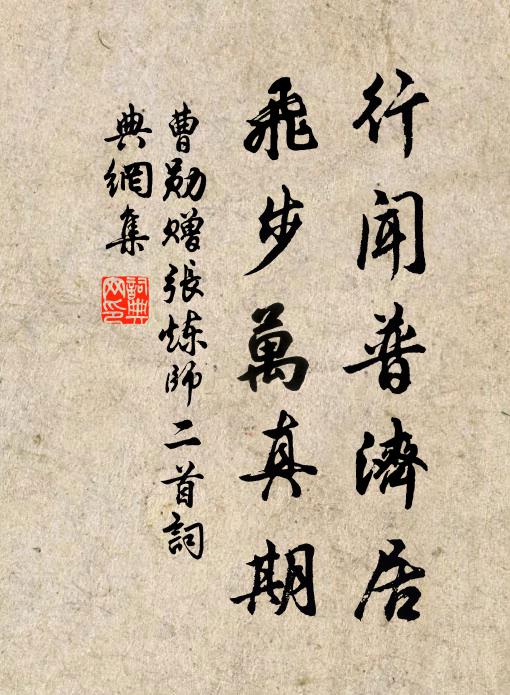 行聞普濟居
飛步萬真期
曹勛贈張煉師二首詞
典網集
詞典
网印